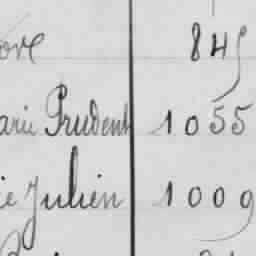 845
arie Prudent 1055
ie Julien 1009